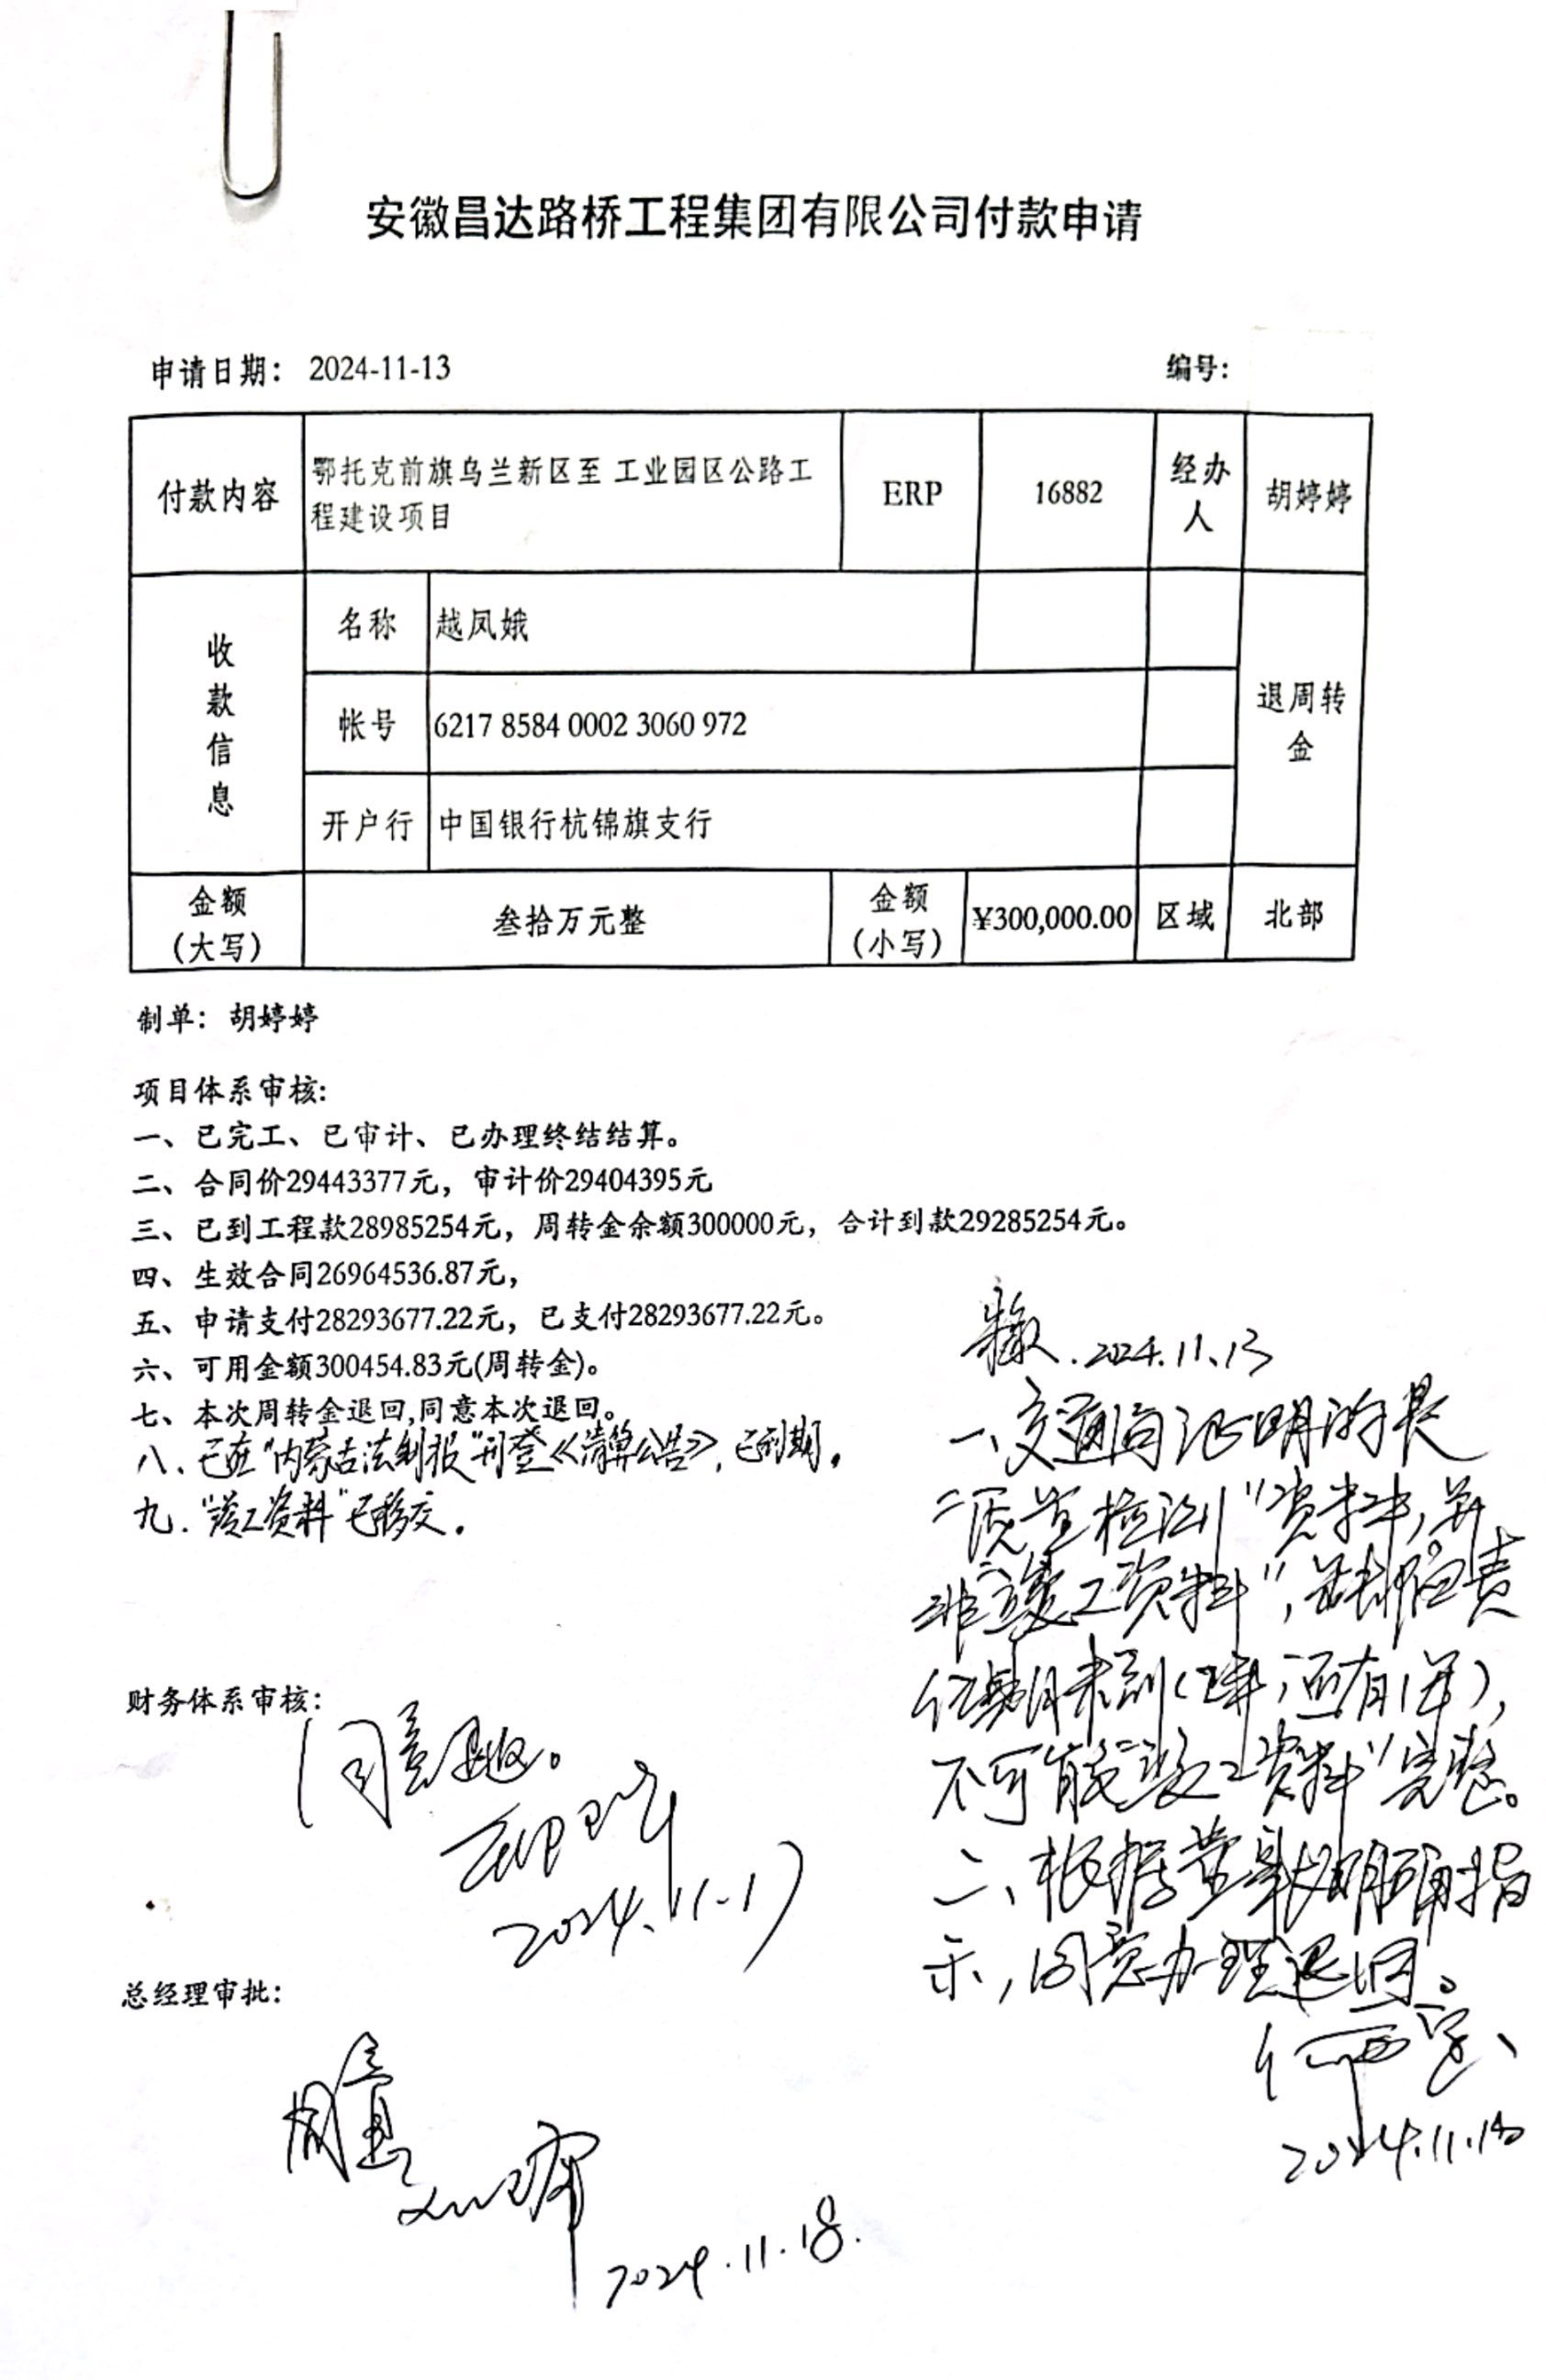 安徽昌达路桥工程集团有限公司付款申请
申请日期： 2024-11-13 编号：
付款内容 鄂托克前旗乌兰新区至 工业园区公路工 ERP 16882 经办人 胡婷婷
程建设项目
收款信息 名称 越凤娥 退周转金
帐号 6217 8584 0002 3060 972
开户行 中国银行杭锦旗支行
金额（大写） 叁拾万元整 金额（小写） ¥300,000.00 区域 北部
制单：胡婷婷
项目体系审核:
一、已完工、已审计、已办理终结结算。
二、合同价29443377元，审计价29404395元
三、已到工程款28985254元，周转金余额300000元，合计到款29285254元。
四、生效合同26964536.87元，
五、申请支付28293677.22元，已支付28293677.22元。
六、可用金额300454.83元(周转金)。
七、本次周转金退回,同意本次退回。
八、已在“内蒙古法制报”刊登《清算公告》，已到期。
九．“竣工资料”已移交．
2024.11.13
一、交通局证明的是
“质量检测”资料，并
非“竣工资料”，缺陷责
任期未到（2年，还有1年），
不可能“竣工资料”完整。
二、根据董事长明确指
示，同意办理退回。
2024.11.14
财务体系审核：
同意退。
2024.11.17
总经理审批：
同意
2024.11.18.